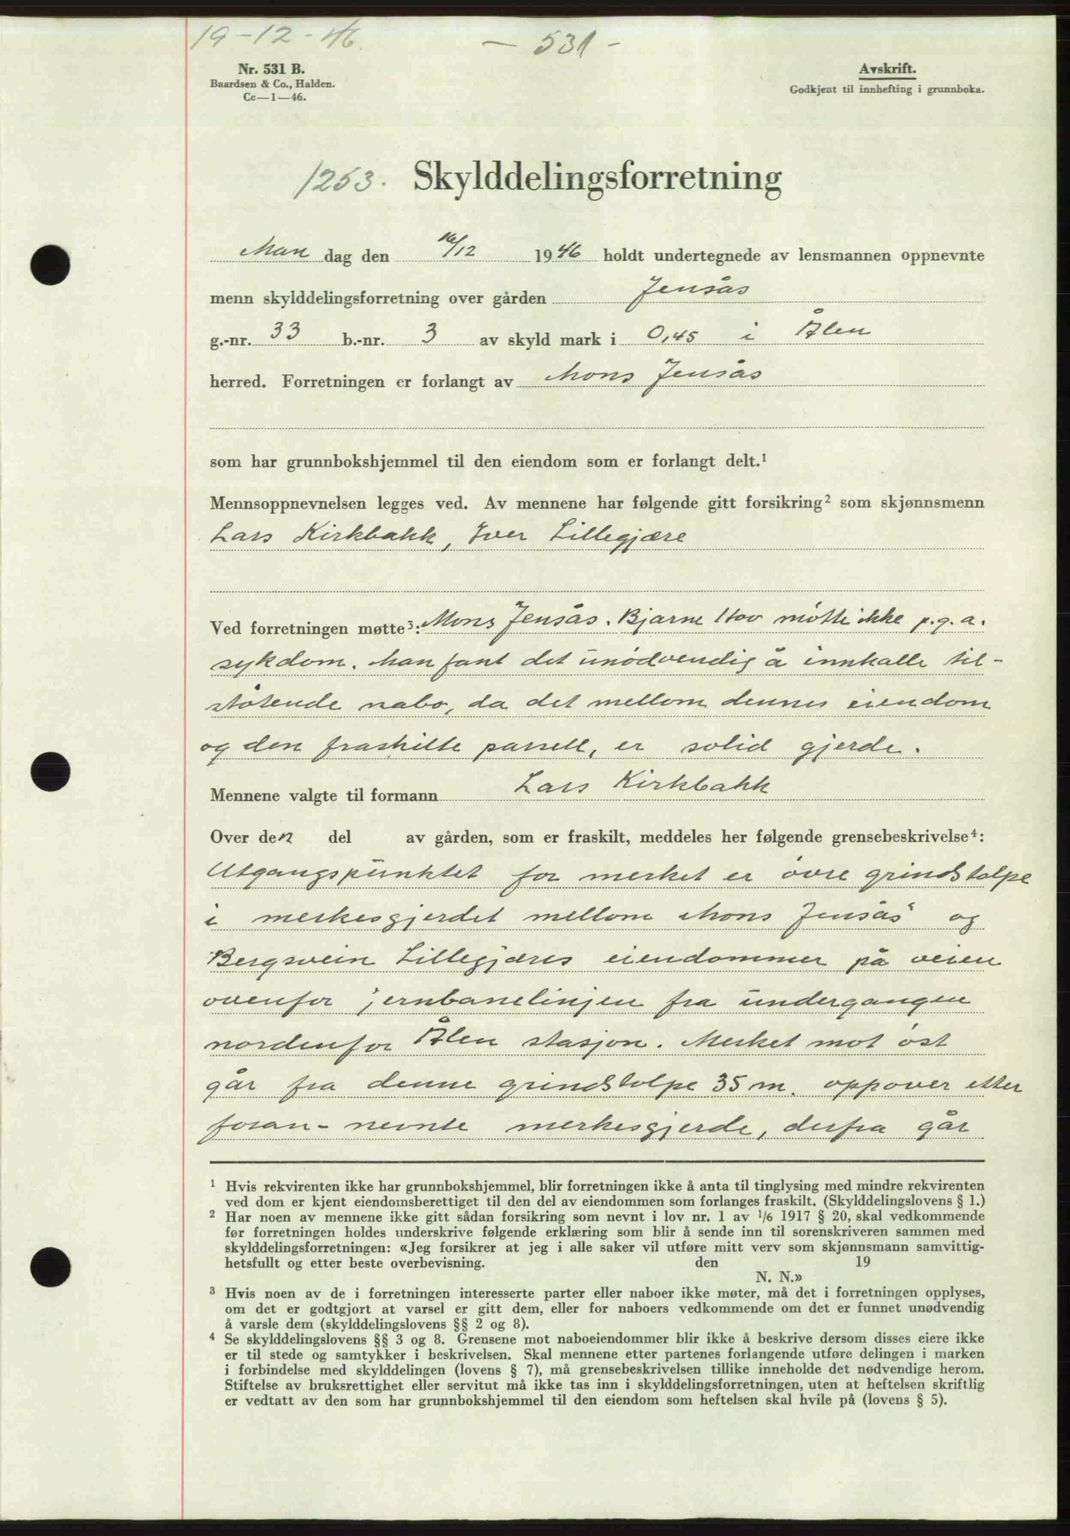 19-12-46.
- 531 -
Nr. 531 B.
Baardsen & Co., Halden.
Cc—1—46.
Avskrift.
Godkjent til innhefting i grunnboka.
1253. Skylddelingsforretning
Man dag den 16/12 1946 holdt undertegnede av lensmannen oppnevnte
menn skylddelingsforretning over gården Jensås
g.-nr. 33 b.-nr. 3 av skyld mark i 0,45 i Ålen
herred. Forretningen er forlangt av Mons Jensås
som har grunnbokshjemmel til den eiendom som er forlangt delt.¹
Mennsoppnevnelsen legges ved. Av mennene har følgende gitt forsikring² som skjønnsmenn
Lars Kirkbakk, Iver Lillegjære
Ved forretningen møtte³: Mons Jensås. Bjarne Hov mötte ikke p.g.a.
sykdom. Man fant det unödvendig å innkalle til-
stötende nabo, da det mellom dennes eiendom
og den fraskilte parsell, er solid gjerde.
Mennene valgte til formann Lars Kirkbakk
Over den del av gården, som er fraskilt, meddeles her følgende grensebeskrivelse⁴:
Utgangspunktet for merket er övre grindstolpe
i merkesgjerdet mellom Mons Jensås' og
Bergsvein Lillegjæres eiendommer på veien
ovenfor jernbanelinjen fra undergangen
nordenfor Ålen stasjon. Merket mot öst
går fra denne grindstolpe 35 m. oppover etter
foran-nevnte merkesgjerde, derfra går
¹ Hvis rekvirenten ikke har grunnbokshjemmel, blir forretningen ikke å anta til tinglysing med mindre rekvirenten
ved dom er kjent eiendomsberettiget til den del av eiendommen som forlanges fraskilt. (Skylddelingslovens § 1.)
² Har noen av mennene ikke gitt sådan forsikring som nevnt i lov nr. 1 av ¹/6 1917 § 20, skal vedkommende
før forretningen holdes underskrive følgende erklæring som blir å sende inn til sorenskriveren sammen med
skylddelingsforretningen: «Jeg forsikrer at jeg i alle saker vil utføre mitt verv som skjønnsmann samvittig-
hetsfullt og etter beste overbevisning. den 19
N. N.»
³ Hvis noen av de i forretningen interesserte parter eller naboer ikke møter, må det i forretningen opplyses,
om det er godtgjort at varsel er gitt dem, eller for naboers vedkommende om det er funnet unødvendig
å varsle dem (skylddelingslovens §§ 2 og 8).
⁴ Se skylddelingslovens §§ 3 og 8. Grensene mot naboeiendommer blir ikke å beskrive dersom disses eiere ikke
er til stede og samtykker i beskrivelsen. Skal mennene etter partenes forlangende utføre delingen i marken
i forbindelse med skylddelingen (lovens § 7), må grensebeskrivelsen tillike inneholde det nødvendige herom.
Stiftelse av bruksrettighet eller servitut må ikke tas inn i skylddelingsforretningen, uten at heftelsen skriftlig
er vedtatt av den som har grunnbokshjemmel til den eiendom som heftelsen skal hvile på (lovens § 5).